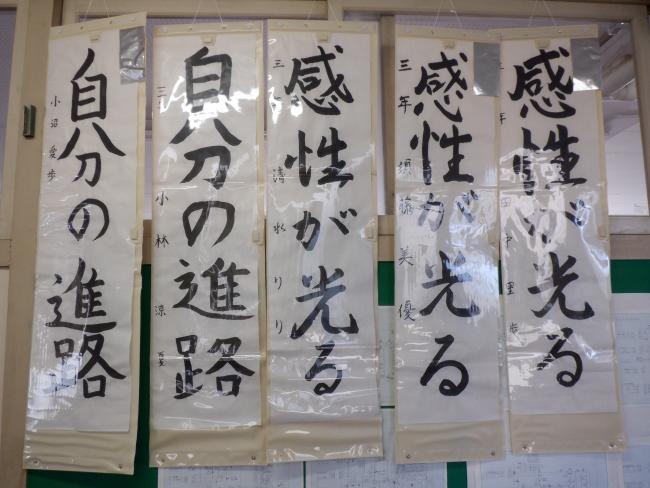 感性が光る
年 田中里歩
感性が光る
三年 須藤美優
感性が光る
三 清水りり
自分の進路
三 小林涼夏
自分の進路
小沼愛歩